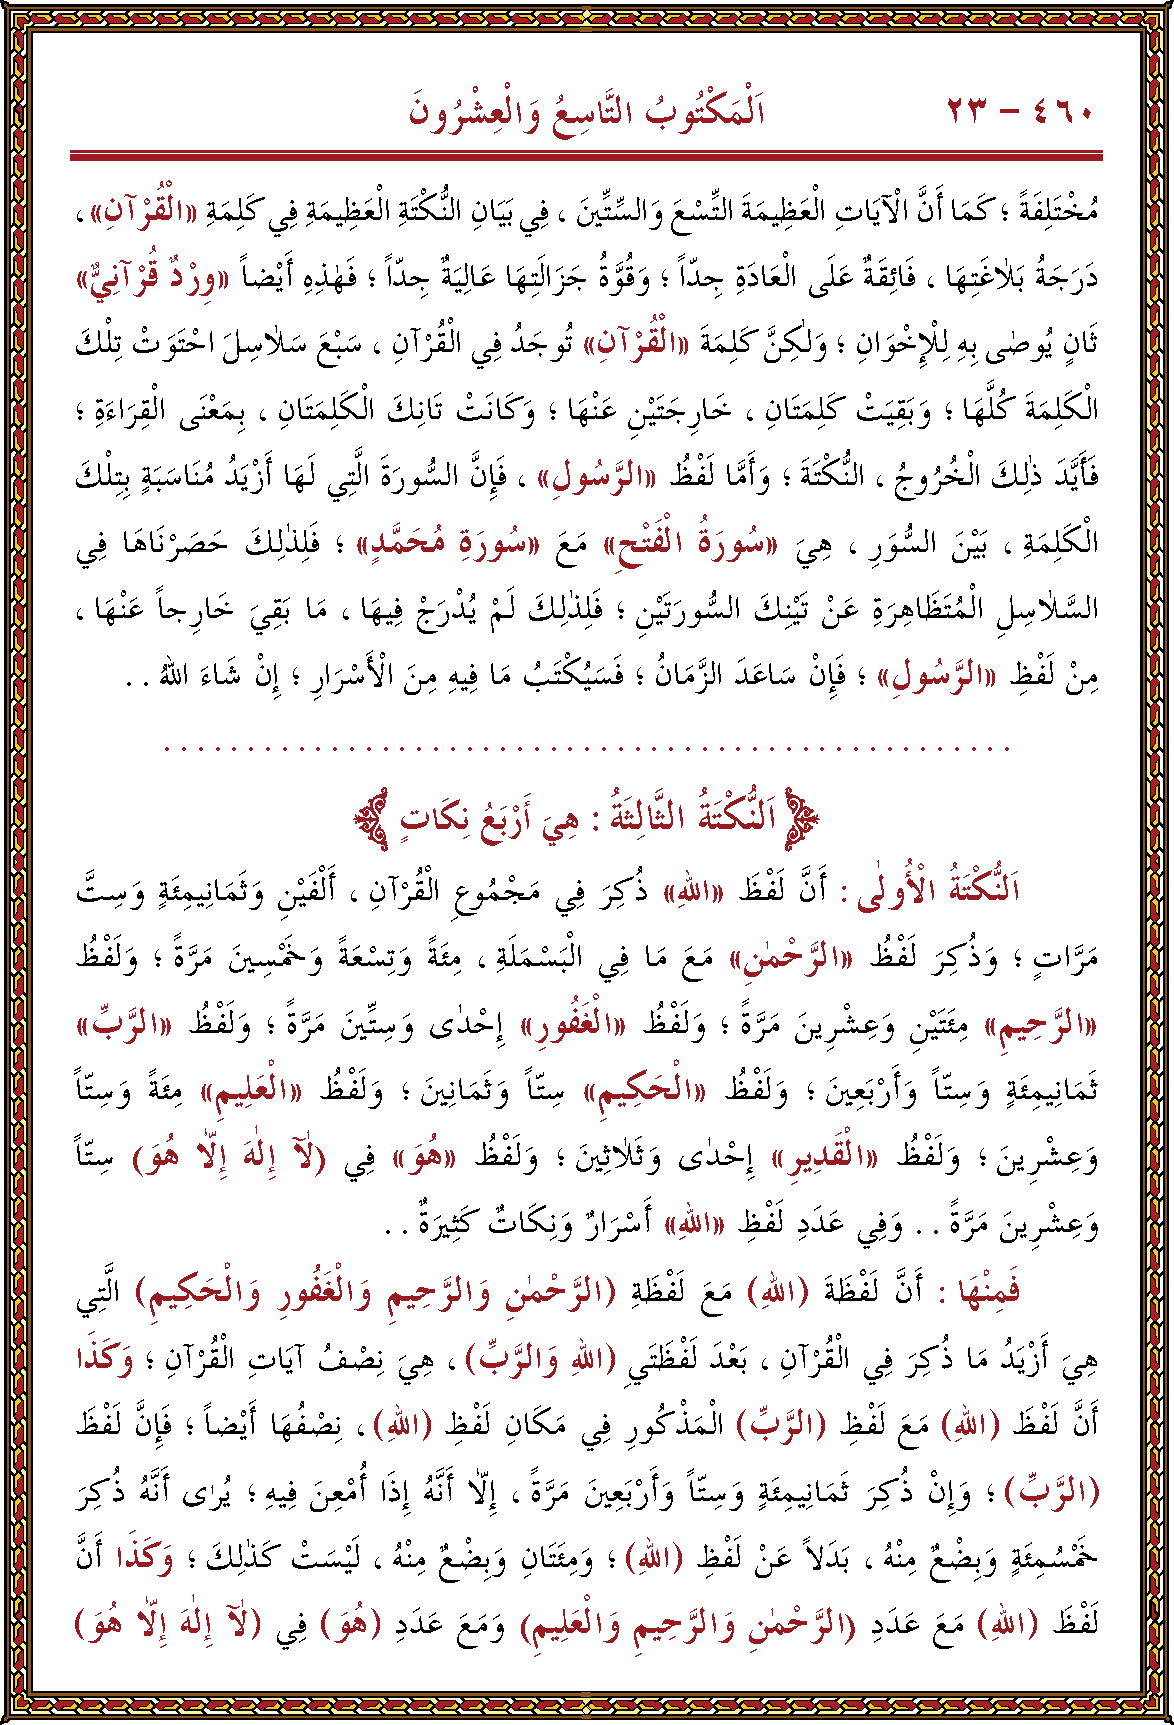 ٤٦٠ - ٢٣
اَلْمَكْتُوبُ التَّاسِعُ وَالْعِشْرُونَ
مُخْتَلِفَةً ؛ كَمَا أَنَّ الْآيَاتِ الْعَظِيمَةَ التِّسْعَ وَالسِّتِّينَ ، فِي بَيَانِ النُّكْتَةِ الْعَظِيمَةِ فِي كَلِمَةِ «الْقُرْآنِ» ،
دَرَجَةُ بَلَاغَتِهَا ، فَائِقَةٌ عَلَى الْعَادَةِ جِدّاً ؛ وَقُوَّةُ جَزَالَتِهَا عَالِيَةٌ جِدّاً ؛ فَهٰذِهِ أَيْضاً «وِرْدٌ قُرْآنِيٌّ»
ثَانٍ يُوصٰى بِهِ لِلْإِخْوَانِ ؛ وَلٰكِنَّ كَلِمَةَ «الْقُرْآنِ» تُوجَدُ فِي الْقُرْآنِ ، سَبْعَ سَلَاسِلَ احْتَوَتْ تِلْكَ
الْكَلِمَةَ كُلَّهَا ؛ وَبَقِيَتْ كَلِمَتَانِ ، خَارِجَتَيْنِ عَنْهَا ؛ وَكَانَتْ تَانِكَ الْكَلِمَتَانِ ، بِمَعْنَى الْقِرَاءَةِ ؛
فَأَيَّدَ ذٰلِكَ الْخُرُوجُ ، النُّكْتَةَ ؛ وَأَمَّا لَفْظُ «الرَّسُولِ» ، فَإِنَّ السُّورَةَ الَّتِي لَهَا أَزْيَدُ مُنَاسَبَةٍ بِتِلْكَ
الْكَلِمَةِ ، بَيْنَ السُّوَرِ ، هِيَ «سُورَةُ الْفَتْحِ» مَعَ «سُورَةِ مُحَمَّدٍ» ؛ فَلِذٰلِكَ حَصَرْنَاهَا فِي
السَّلَاسِلِ الْمُتَظَاهِرَةِ عَنْ تَيْنِكَ السُّورَتَيْنِ ؛ فَلِذٰلِكَ لَمْ يُدْرَجْ فِيهَا ، مَا بَقِيَ خَارِجاً عَنْهَا ،
مِنْ لَفْظِ «الرَّسُولِ» ؛ فَإِنْ سَاعَدَ الزَّمَانُ ؛ فَسَيُكْتَبُ مَا فِيهِ مِنَ الْأَسْرَارِ ؛ إِنْ شَاءَ اللّٰهُ . .
. . . . . . . . . . . . . . . . . . . . . . . . . . . . . . . . . . . . . . . . . . . . . . . . . . .
اَلنُّكْتَةُ الثَّالِثَةُ : هِيَ أَرْبَعُ نِكَاتٍ
اَلنُّكْتَةُ الْأُولٰى : أَنَّ لَفْظَ «اللّٰهِ» ذُكِرَ فِي مَجْمُوعِ الْقُرْآنِ ، أَلْفَيْنِ وَثَمَانِيمِئَةٍ وَسِتَّ
مَرَّاتٍ ؛ وَذُكِرَ لَفْظُ «الرَّحْمٰنِ» مَعَ مَا فِي الْبَسْمَلَةِ ، مِئَةً وَتِسْعَةً وَخَمْسِينَ مَرَّةً ؛ وَلَفْظُ
«الرَّحِيمِ» مِئَتَيْنِ وَعِشْرِينَ مَرَّةً ؛ وَلَفْظُ «الْغَفُورِ» إِحْدٰى وَسِتِّينَ مَرَّةً ؛ وَلَفْظُ «الرَّبِّ»
ثَمَانِيمِئَةٍ وَسِتّاً وَأَرْبَعِينَ ؛ وَلَفْظُ «الْحَكِيمِ» سِتّاً وَثَمَانِينَ ؛ وَلَفْظُ «الْعَلِيمِ» مِئَةً وَسِتّاً
وَعِشْرِينَ ؛ وَلَفْظُ «الْقَدِيرِ» إِحْدٰى وَثَلَاثِينَ ؛ وَلَفْظُ «هُوَ» فِي (لَآ إِلٰهَ إِلَّا هُوَ) سِتّاً
وَعِشْرِينَ مَرَّةً . . وَفِي عَدَدِ لَفْظِ «اللّٰهِ» أَسْرَارٌ وَنِكَاتٌ كَثِيرَةٌ . .
فَمِنْهَا : أَنَّ لَفْظَةَ (اللّٰهِ) مَعَ لَفْظَةِ (الرَّحْمٰنِ وَالرَّحِيمِ وَالْغَفُورِ وَالْحَكِيمِ) الَّتِي
هِيَ أَزْيَدُ مَا ذُكِرَ فِي الْقُرْآنِ ، بَعْدَ لَفْظَتَيِ (اللّٰهِ وَالرَّبِّ) ، هِيَ نِصْفُ آيَاتِ الْقُرْآنِ ؛ وَكَذَا
أَنَّ لَفْظَ (اللّٰهِ) مَعَ لَفْظِ (الرَّبِّ) الْمَذْكُورِ فِي مَكَانِ لَفْظِ (اللّٰهِ) ، نِصْفُهَا أَيْضاً ؛ فَإِنَّ لَفْظَ
(الرَّبِّ) ؛ وَإِنْ ذُكِرَ ثَمَانِيمِئَةٍ وَسِتّاً وَأَرْبَعِينَ مَرَّةً ، إِلَّا أَنَّهُ إِذَا أُمْعِنَ فِيهِ ؛ يُرٰى أَنَّهُ ذُكِرَ
خَمْسُمِئَةٍ وَبِضْعٌ مِنْهُ ، بَدَلاً عَنْ لَفْظِ (اللّٰهِ) ؛ وَمِئَتَانِ وَبِضْعٌ مِنْهُ ، لَيْسَتْ كَذٰلِكَ ؛ وَكَذَا أَنَّ
لَفْظَ (اللّٰهِ) مَعَ عَدَدِ (الرَّحْمٰنِ وَالرَّحِيمِ وَالْعَلِيمِ) وَمَعَ عَدَدِ (هُوَ) فِي (لَآ إِلٰهَ إِلَّا هُوَ)